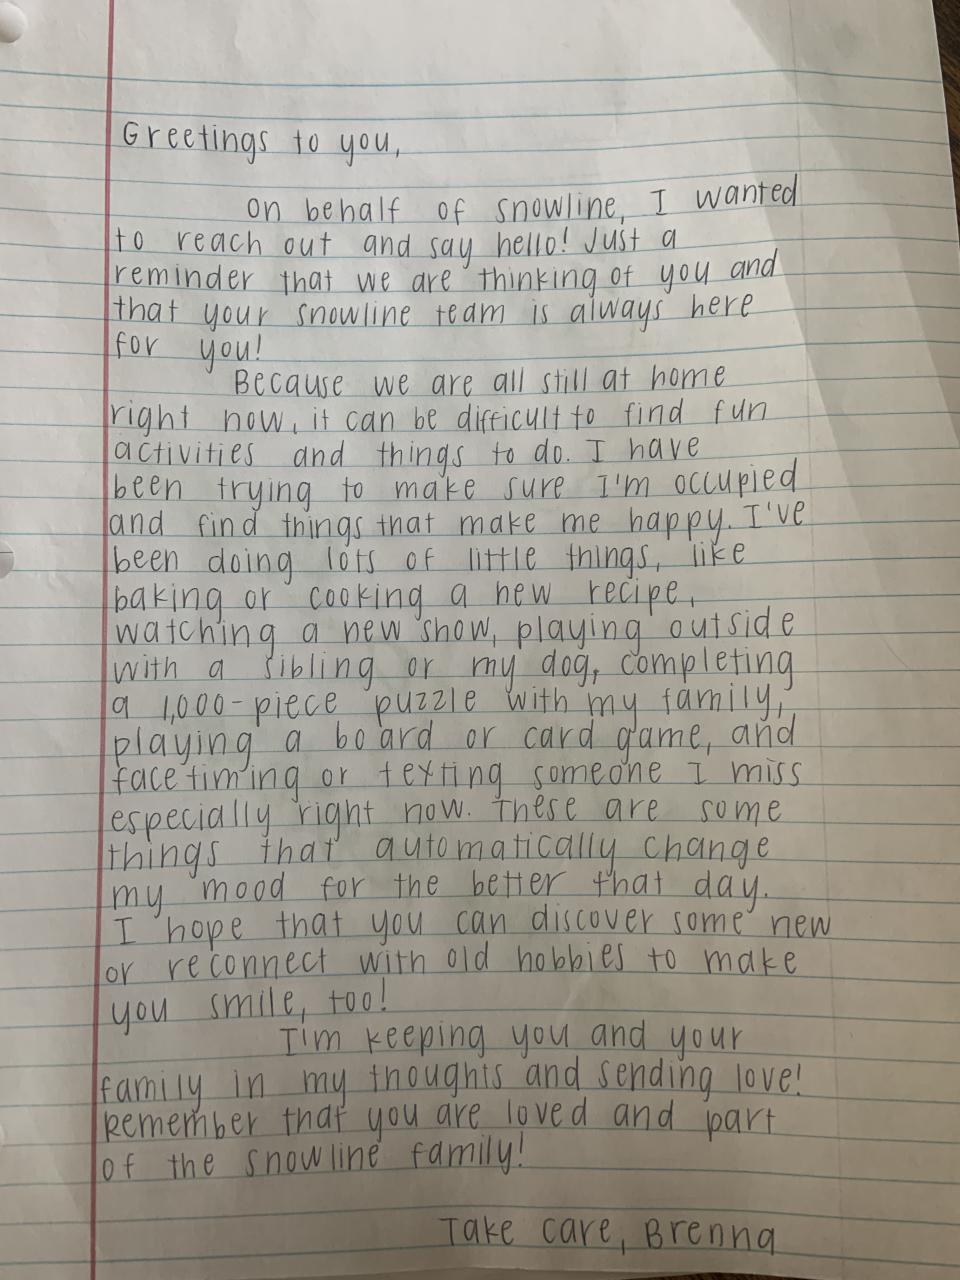 Greetings to you,
on behalf of snowline, I wanted
to reach out and say hello! Just a
reminder that we are thinking of you and
that your snowline team is always here
for you!
Because we are all still at home
right now, it can be difficult to find fun
activities and things to do. I have
been trying to make sure I'm occupied
and find things that make me happy. I've
been doing lots of little things, like
baking or cooking a new recipe,
watching a new show, playing outside
with a sibling or my dog, completing
a 1,000-piece puzzle with my family,
playing a board or card game, and
facetiming or texting someone I miss
especially right now. These are some
things that automatically change
my mood for the better that day.
I hope that you can discover some new
or reconnect with old hobbies to make
you smile, too!
I'm keeping you and your
family in my thoughts and sending love!
Remember that you are loved and part
of the snowline family!
Take care, Brenna